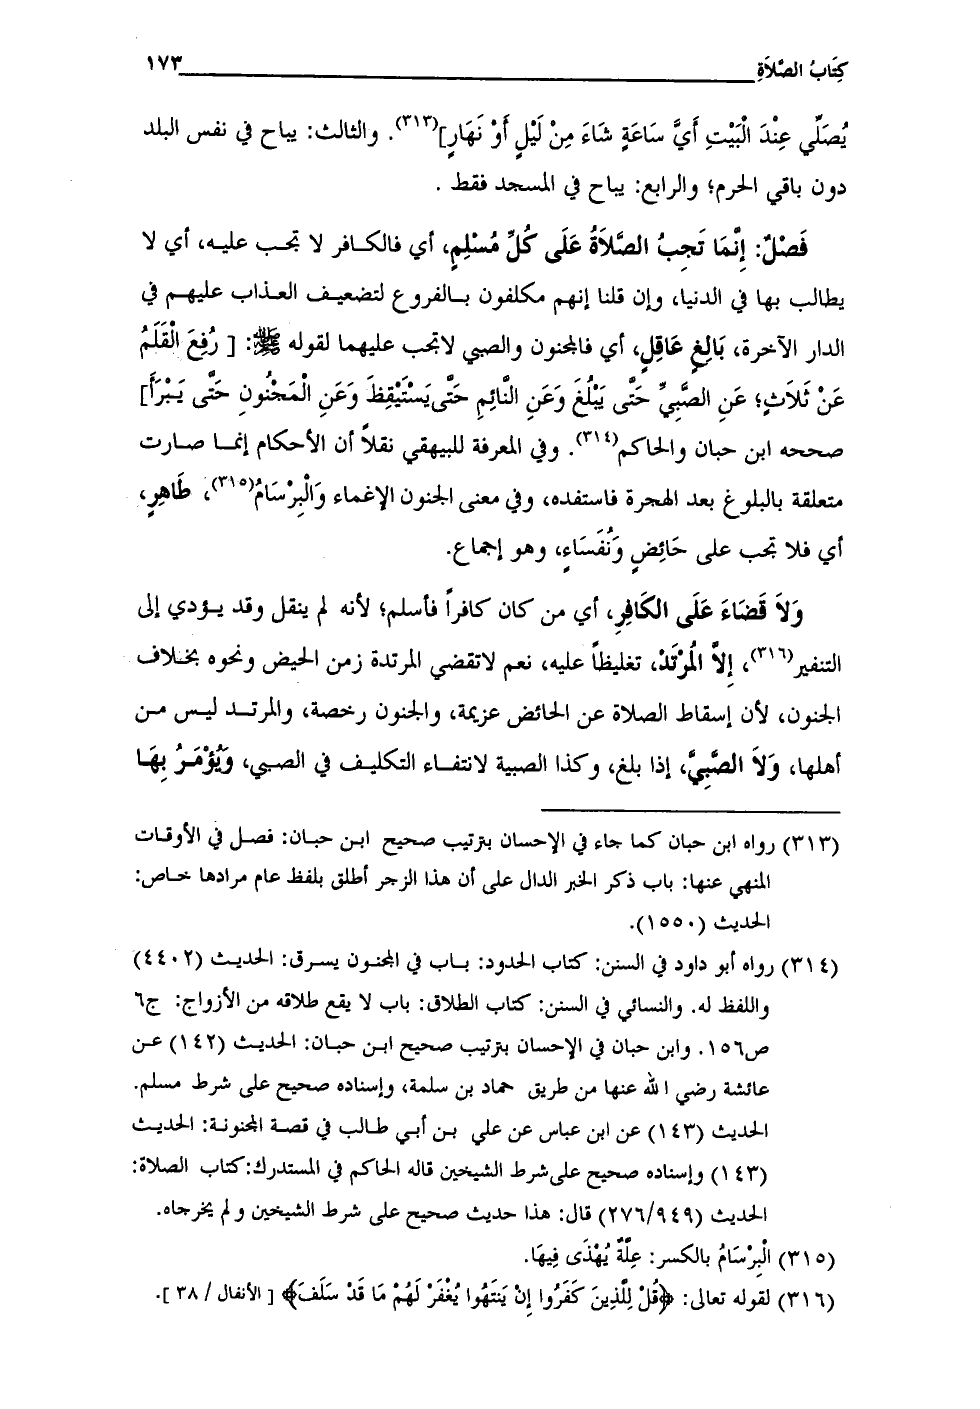 كِتَابُ الصَّلَاةِ ١٧٣
يُصَلِّي عِنْدَ الْبَيْتِ أَيَّ سَاعَةٍ شَاءَ مِنْ لَيْلٍ أَوْ نَهَارٍ](٣١٣). والثالث: يباح في نفس البلد
دون باقي الحرم؛ والرابع: يباح في المسجد فقط .
فَصْلٌ: إِنَّمَا تَجِبُ الصَّلَاةُ عَلَى كُلِّ مُسْلِمٍ، أي فالكافر لا تجب عليه، أي لا
يطالب بها في الدنيا، وإن قلنا إنهم مكلفون بالفروع لتضعيف العذاب عليهم في
الدار الآخرة، بَالِغٍ عَاقِلٍ، أي فالمجنون والصبي لاتجب عليهما لقوله ﷺ: [ رُفِعَ الْقَلَمُ
عَنْ ثَلَاثٍ؛ عَنِ الصَّبِيِّ حَتَّى يَبْلُغَ وَعَنِ النَّائِمِ حَتَّى يَسْتَيْقِظَ وَعَنِ الْمَجْنُونِ حَتَّى يَبْرَأَ]
صححه ابن حبان والحاكم(٣١٤). وفي المعرفة للبيهقي نقلاً أن الأحكام إنما صارت
متعلقة بالبلوغ بعد الهجرة فاستفده، وفي معنى الجنون الإغماء وَالْبِرْسَامُ(٣١٥)، طَاهِرٍ،
أي فلا تجب على حَائِضٍ وَنُفَسَاءٍ، وهو إجماع.
وَلَا قَضَاءَ عَلَى الكَافِرِ، أي من كان كافراً فأسلم؛ لأنه لم ينقل وقد يؤدي إلى
التنفير(٣١٦)، إِلَّا الْمُرْتَدْ، تغليظاً عليه، نعم لاتقضي المرتدة زمن الحيض ونحوه بخلاف
الجنون، لأن إسقاط الصلاة عن الحائض عزيمة، والجنون رخصة، والمرتد ليس من
أهلها، وَلَا الصَّبِيَّ، إذا بلغ، وكذا الصبية لانتفاء التكليف في الصبي، وَيُؤْمَرُ بِهَا
(٣١٣) رواه ابن حبان كما جاء في الإحسان بترتيب صحيح ابن حبان: فصل في الأوقات
المنهي عنها: باب ذكر الخبر الدال على أن هذا الزجر أطلق بلفظ عام مرادها خاص:
الحديث (١٥٥٠).
(٣١٤) رواه أبو داود في السنن: كتاب الحدود: باب في المجنون يسرق: الحديث (٤٤٠٢)
واللفظ له. والنسائي في السنن: كتاب الطلاق: باب لا يقع طلاقه من الأزواج: ج٦
ص١٥٦. وابن حبان في الإحسان بترتيب صحيح ابن حبان: الحديث (١٤٢) عن
عائشة رضي الله عنها من طريق حماد بن سلمة، وإسناده صحيح على شرط مسلم.
الحديث (١٤٣) عن ابن عباس عن علي بن أبي طالب في قصة المجنونة: الحديث
(١٤٣) وإسناده صحيح على شرط الشيخين قاله الحاكم في المستدرك:كتاب الصلاة:
الحديث (٢٧٦/٩٤٩) قال: هذا حديث صحيح على شرط الشيخين ولم يخرجاه.
(٣١٥) الْبِرْسَامُ بالكسر: عِلَّةٌ يُهْذَى فِيهَا.
(٣١٦) لقوله تعالى: ﴿قُلْ لِلَّذِينَ كَفَرُوا إِنْ يَنتَهُوا يُغْفَرْ لَهُمْ مَا قَدْ سَلَفَ﴾ [ الأنفال / ٣٨ ].